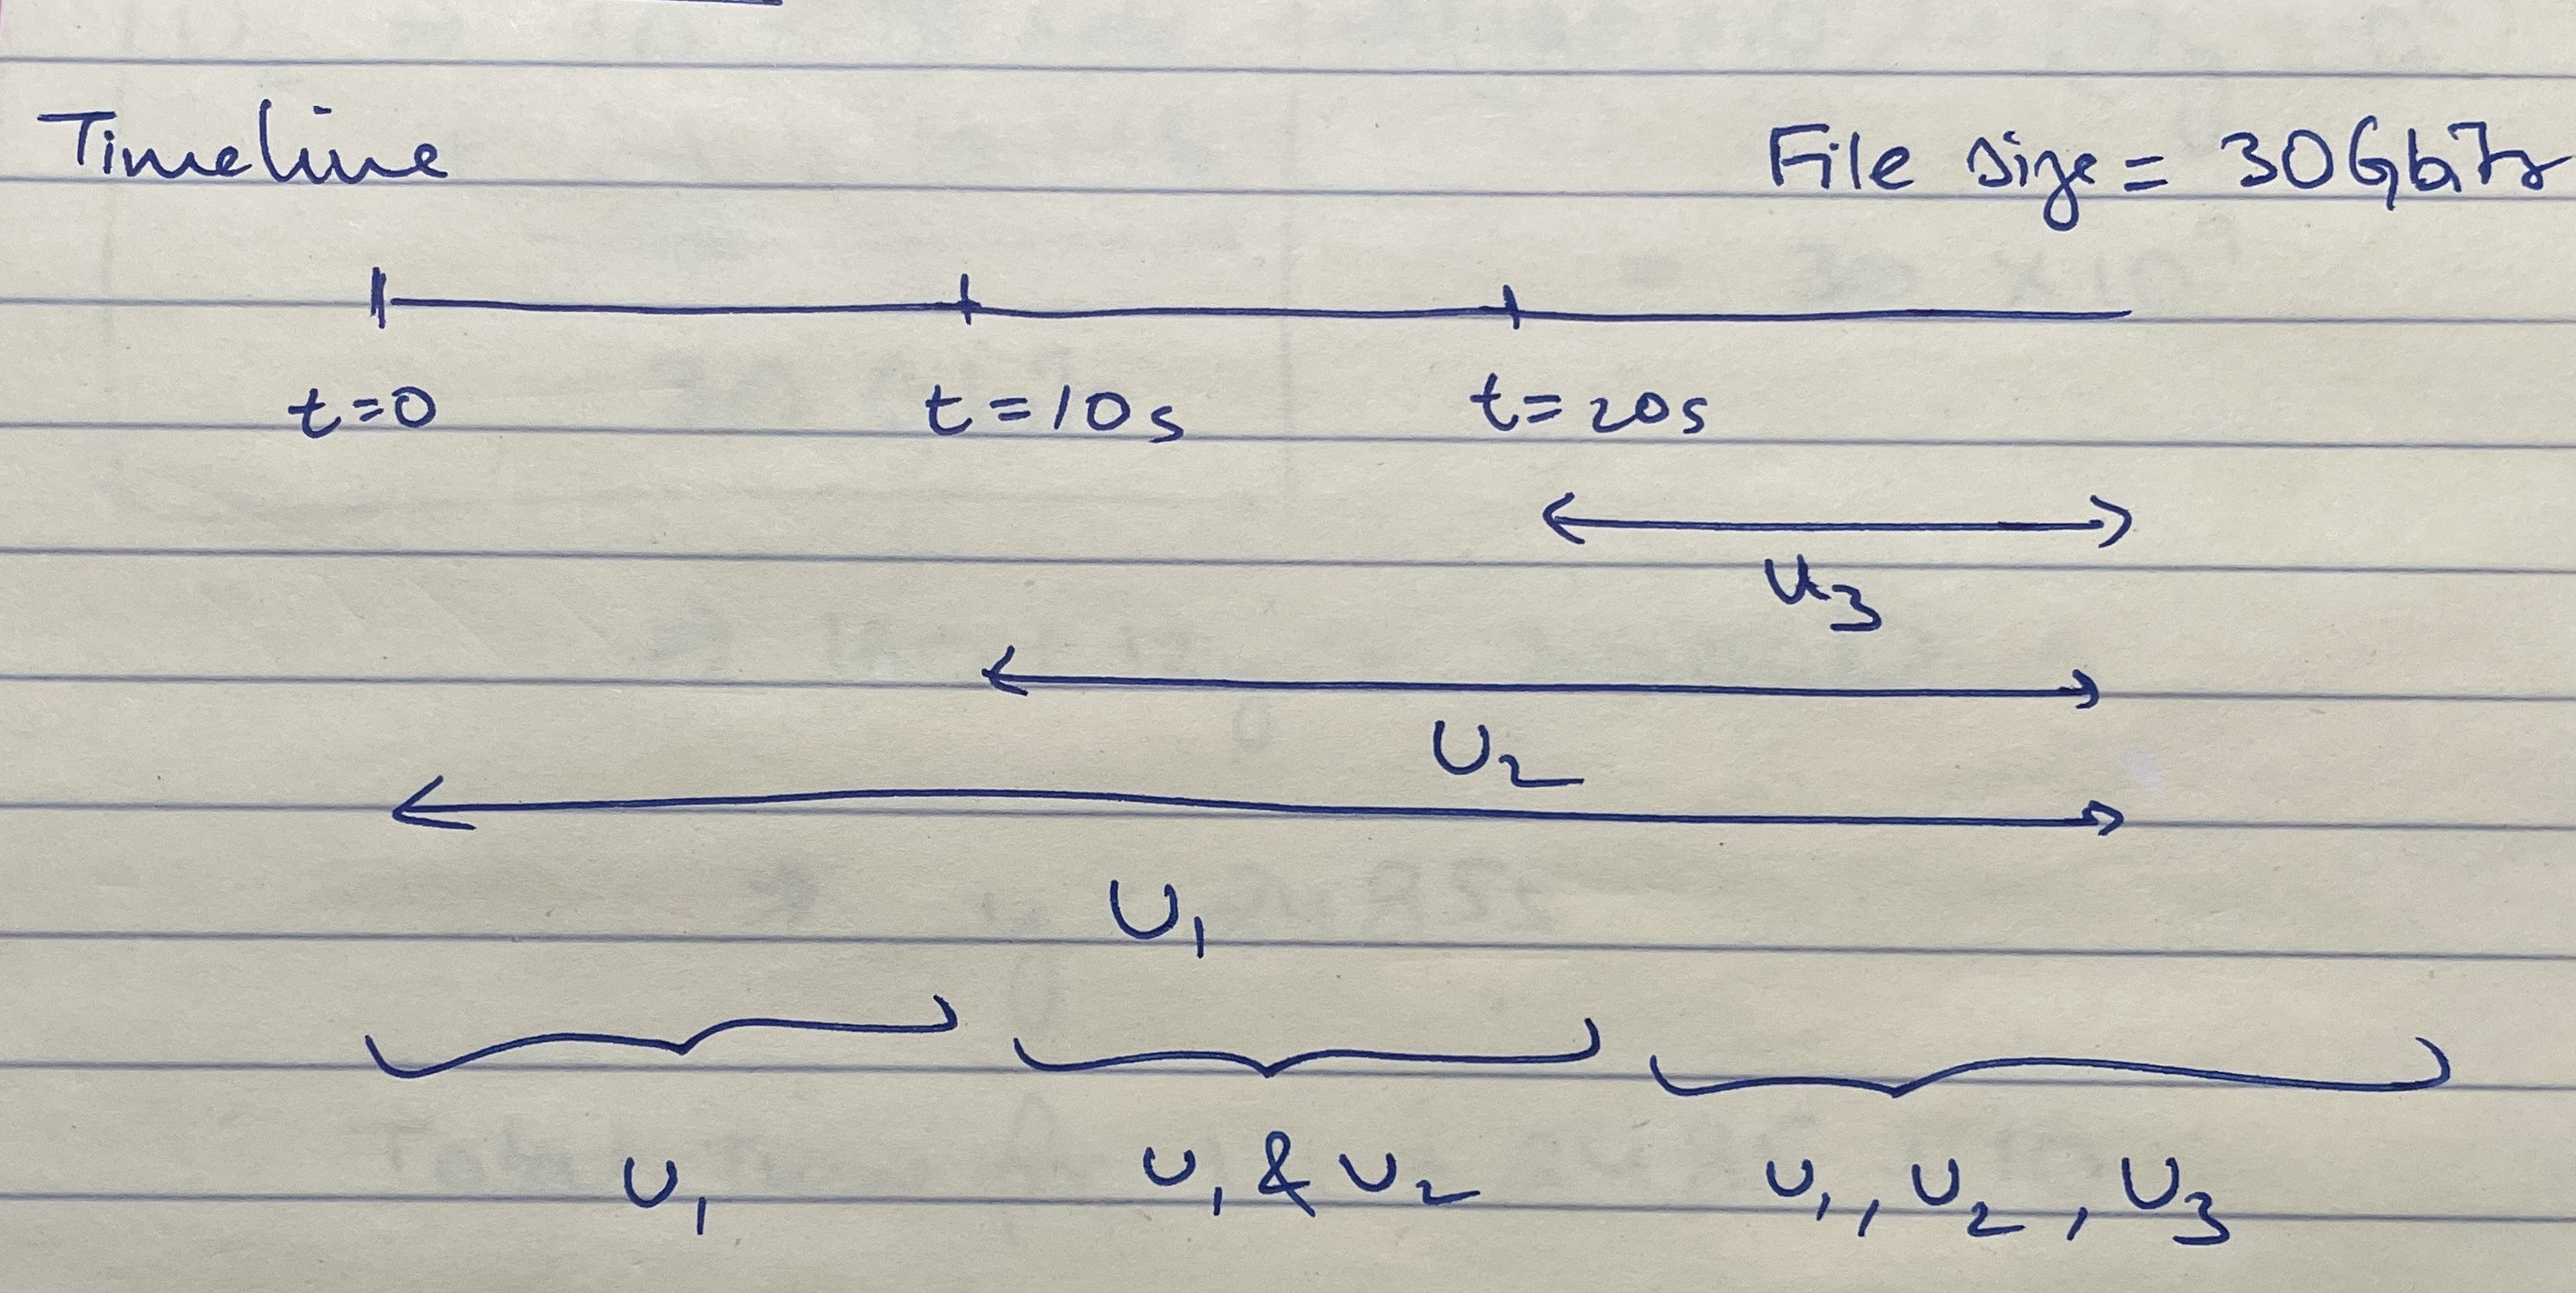 Timeline File size = 30Gbits
t=0 t=10s t=20s
U3
U2
U1
U1 U1 & U2 U1, U2, U3